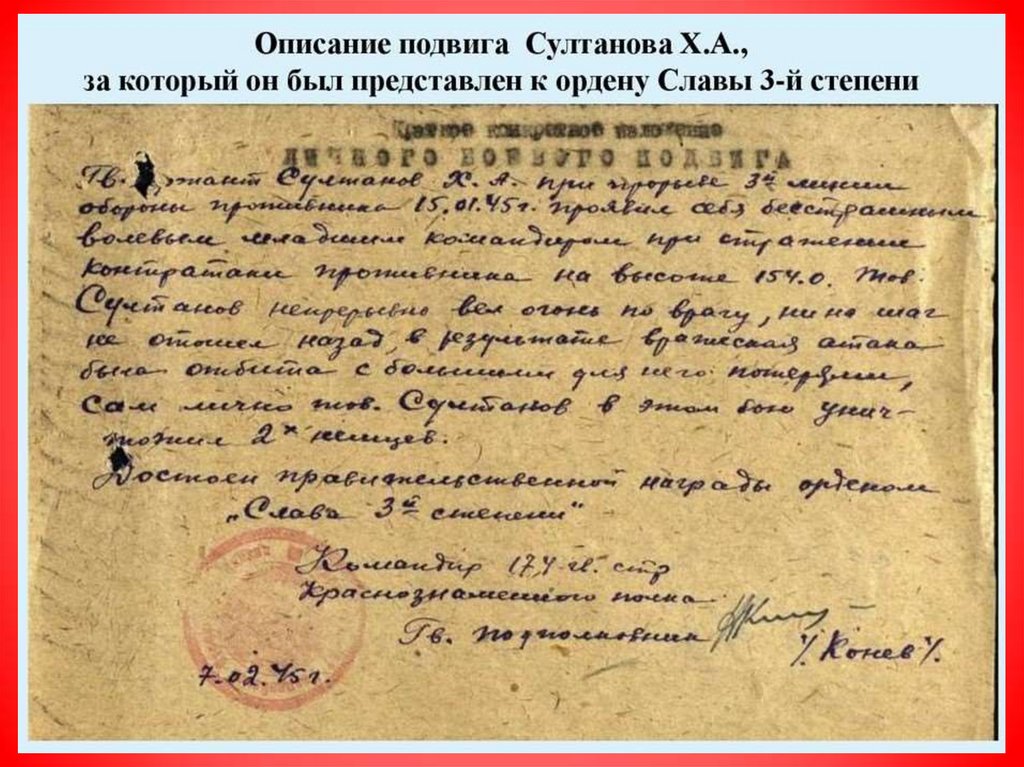 Описание подвига Султанова Х.А.,
за который он был представлен к ордену Славы 3-й степени
Краткое конкретное изложение
ЛИЧНОГО БОЕВОГО ПОДВИГА
Гв. Султанов Х. А. при прорыве 3й линии
обороны противника 15.01.45г. проявил себя бесстрашным
волевым младшим командиром при отражении
контратаки противника на высоте 154.0. Тов.
Султанов непрерывно вел огонь по врагу, ни на шаг
не отошел назад, в результате вражеская атака
была отбита с большими для него потерями,
сам лично тов. Султанов в этом бою унич-
тожил 2х немцев.
Достоен правительственной награды орденом
„Слава 3й степени"
Командир 174 гв. стр
Краснознаменного полка
Гв. подполковник /Конев/.
7.02.45г.